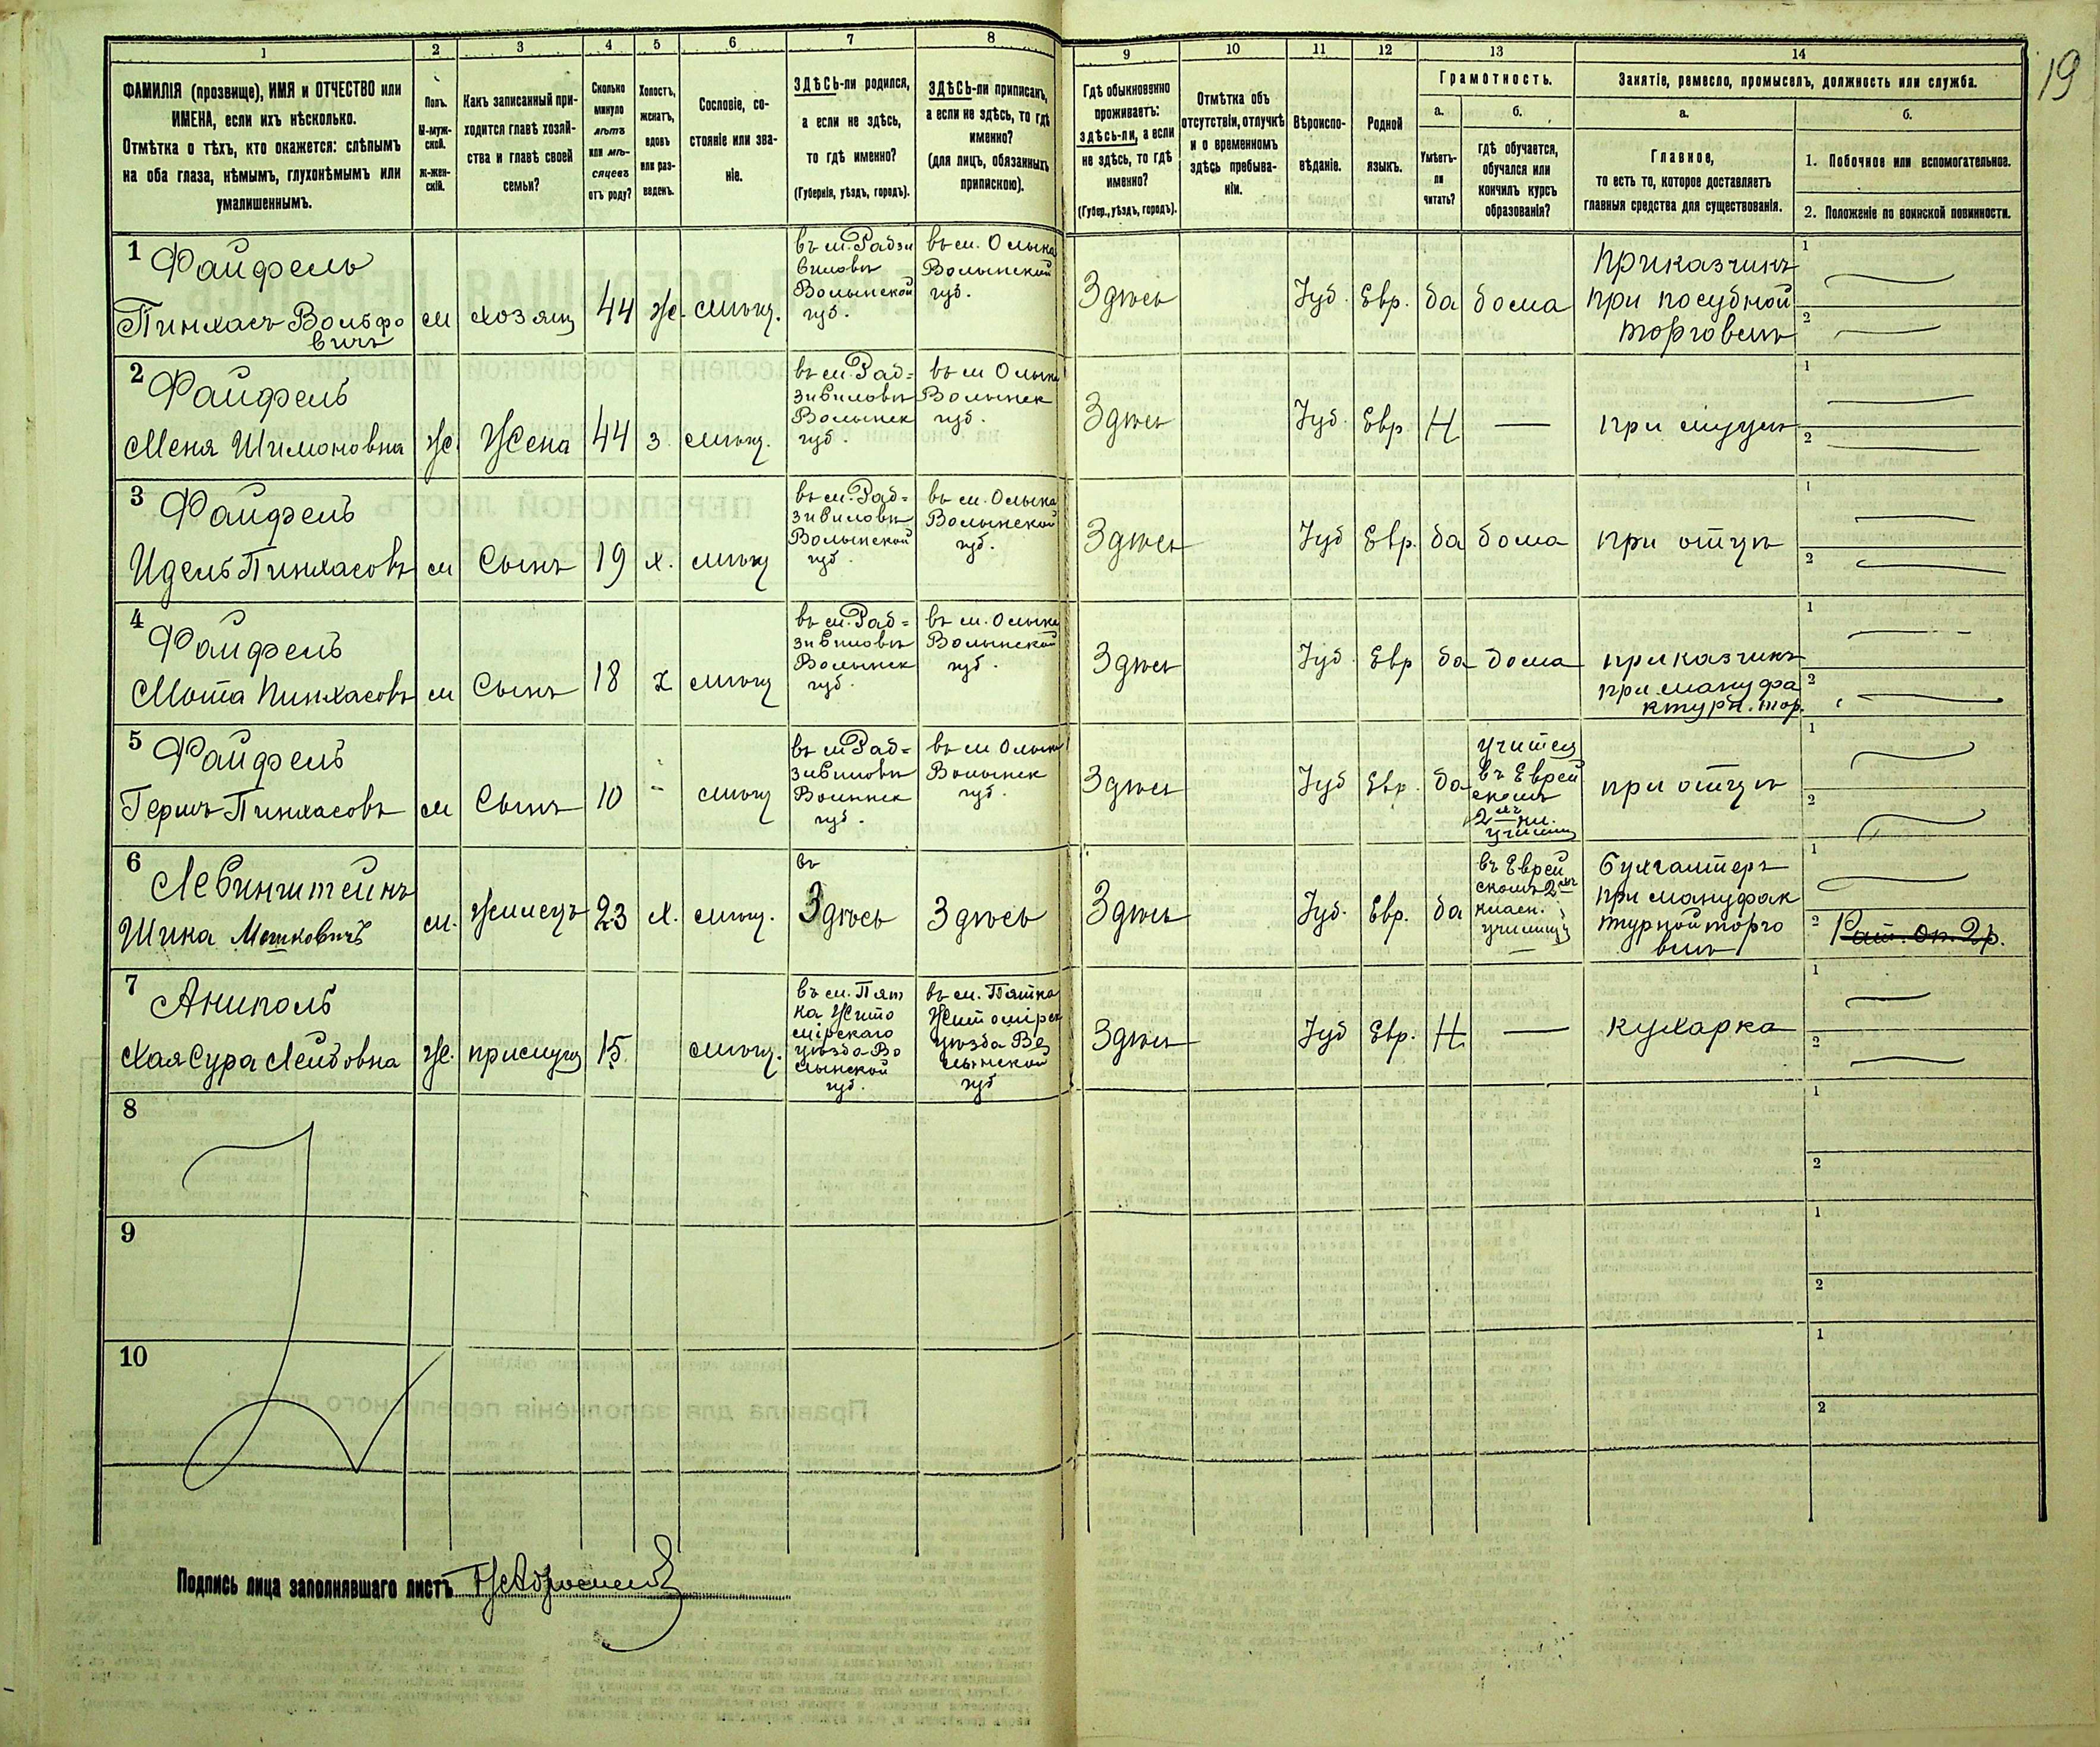 19
1 2 3 4 5 6 7 8 9 10 11 12 13 14
ФАМИЛІЯ (прозвище), ИМЯ и ОТЧЕСТВО или
ИМЕНА, если ихъ нѣсколько.
Отмѣтка о тѣхъ, кто окажется: слѣпымъ
на оба глаза, нѣмымъ, глухонѣмымъ или
умалишеннымъ.
Полъ.
М-муж-
ской.
Ж-жен-
скій.
Какъ записанный при-
ходится главѣ хозяй-
ства и главѣ своей
семьи?
Сколько
минуло
лѣтъ
или мѣ-
сяцевъ
отъ роду?
Холостъ,
женатъ,
вдовъ
или раз-
веденъ.
Сословіе, со-
стояніе или зва-
ніе.
ЗДѢСЬ-ли родился,
а если не здѣсь,
то гдѣ именно?
(Губернія, уѣздъ, городъ).
ЗДѢСЬ-ли приписанъ,
а если не здѣсь, то гдѣ
именно?
(для лицъ, обязанныхъ
припискою).
Гдѣ обыкновенно
проживаетъ:
здѣсь-ли, а если
не здѣсь, то гдѣ
именно?
(Губер., уѣздъ, городъ).
Отмѣтка объ
отсутствіи, отлучкѣ
и о временномъ
здѣсь пребыва-
ніи.
Вѣроиспо-
вѣданіе.
Родной
языкъ.
Грамотность.
а.
Умѣетъ-
ли
читать?
б.
гдѣ обучается,
обучался или
кончилъ курсъ
образованія?
Занятіе, ремесло, промыселъ, должность или служба.
а.
Главное,
то есть то, которое доставляетъ
главныя средства для существованія.
б.
1. Побочное или вспомогательное.
2. Положеніе по воинской повинности.
1 Файфель
Пинхасъ Вольфо
вичъ
м хозяин 44 Же. мѣщ.
въ м. Радзи
виловѣ
Волынской
губ.
въ м. Олыка
Волынской
губ.
Здѣсь Іуд. Евр. да дома
приказчикъ
при посудной
торговлѣ
1
2
2 Файфель
Меня Шимоновна
Же. Жена 44 з. мѣщ.
въ м. Рад=
зивиловѣ
Волынск
губ.
въ м Олыка
Волынск
губ.
Здѣсь Іуд. Евр Н — при мужѣ
1
2
3 Файфель
Идель Пинхасовъ
м Сынъ 19 х. мѣщ
въ м. Рад=
зивиловѣ
Волынской
губ.
въ м. Олыка
Волынской
губ.
Здѣсь Іуд Евр. да дома при отцѣ
1
2
4 Файфель
Мота Пинхасовъ
м Сынъ 18 х мѣщ
въ м. Рад=
зивиловѣ
Волынск
губ.
въ м. Олыка
Волынской
губ.
Здѣсь Іуд. Евр да дома
приказчикъ
при мануфа
ктурн. тор.
1
2
5 Файфель
Гершъ Пинхасовъ
м Сынъ 10 - мѣщ
въ м Рад=
зивиловѣ
Волынск
губ.
въ м Олыка
Волынск
губ.
Здѣсь Іуд Евр. да
учится
въ Еврей
скомъ
2хъ кл.
училищ
при отцѣ
1
2
6 Левинштейнъ
Шика Мошковичъ
м. Жилецъ 23 х. мѣщ.
въ
Здѣсь Здѣсь Здѣсь Іуд. Евр. да
въ Еврей
скомъ 2хъ
класн.
училищ
бухгалтеръ
при мануфак
турной торго
влѣ
1
2 Рат. оп. 2 р.
7 Аниполь
Хая Сура Лейбовна
Же. прислуга 15. мѣщ.
въ м. Пят
ка Жито
мірскаго
уѣзда Во
лынской
губ.
въ м. Пятка
Житомірск
уѣзда Во
лынской
губ
Здѣсь Іуд Евр. Н — кухарка
1
2
8
1
2
9
1
2
10
1
2
Подпись лица заполнявшаго листъ